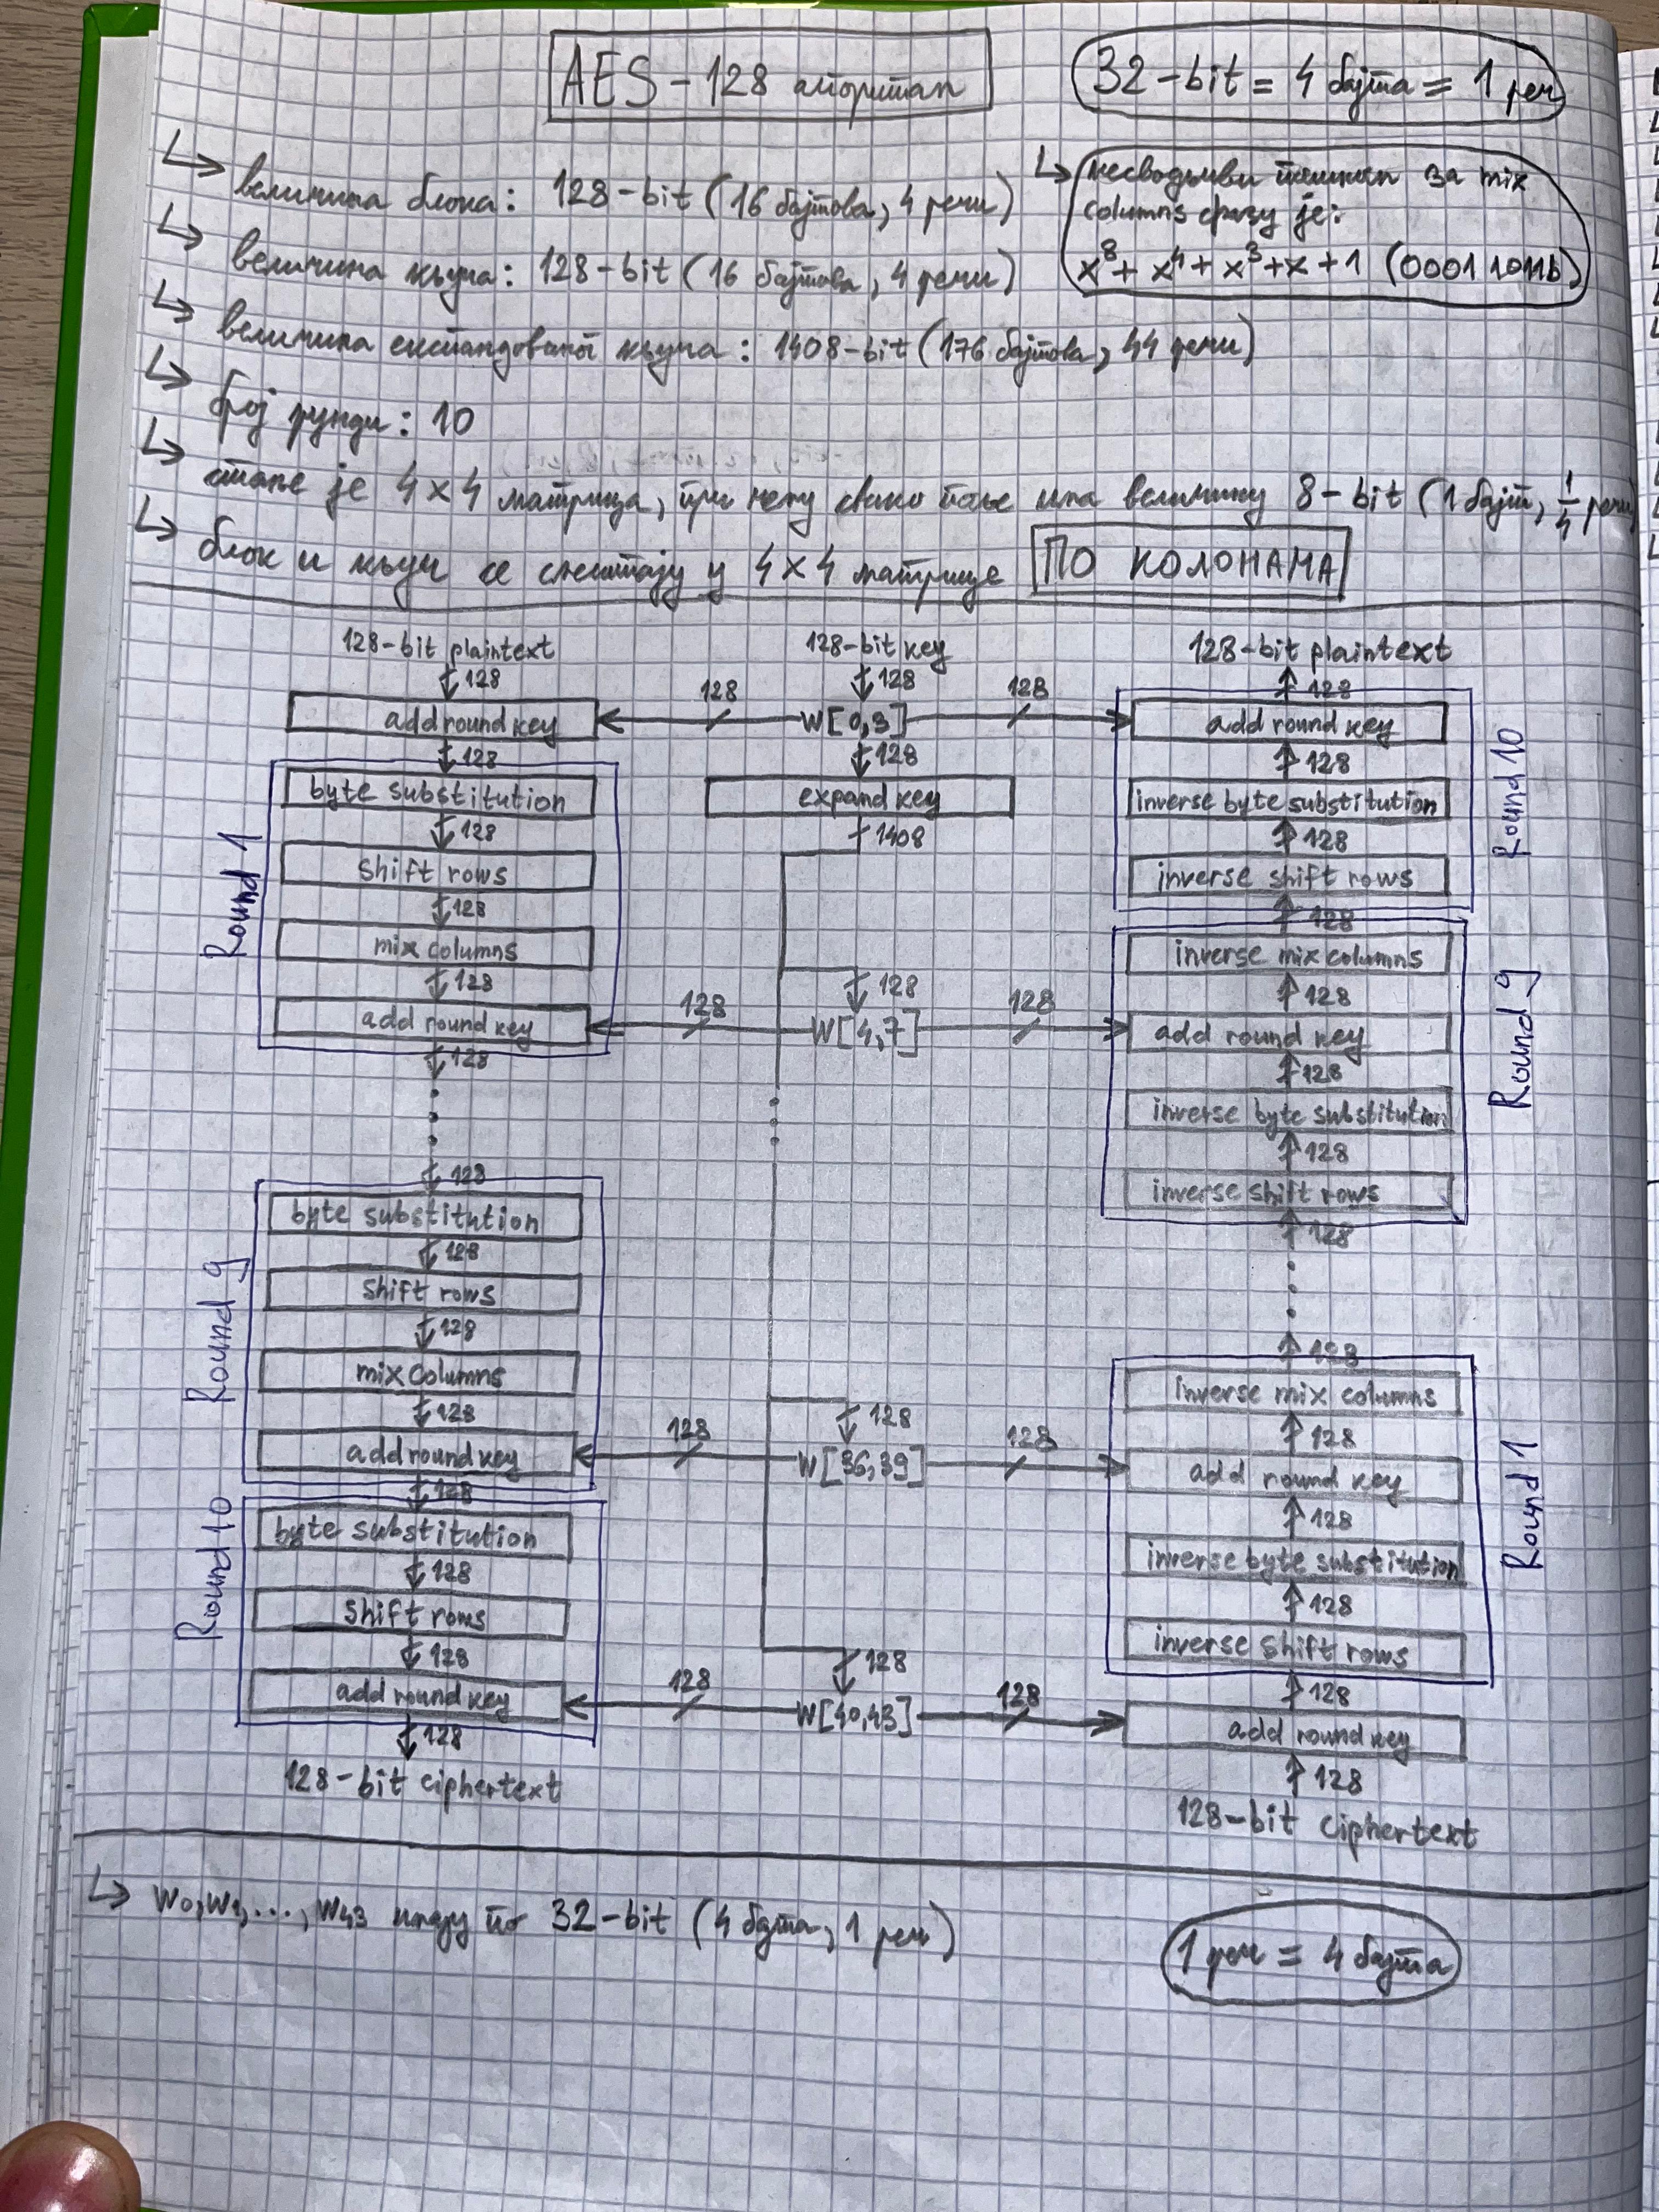 AES-128 алгоритам
32-bit = 4 бајта = 1 реч
↳ величина блока: 128-bit (16 бајтова, 4 речи)
↳ величина кључа: 128-bit (16 бајтова, 4 речи)
↳ величина експандованог кључа: 1408-bit (176 бајтова, 44 речи)
↳ број рунди: 10
↳ несводљиви полином за mix
columns фазу је:
x⁸ + x⁴ + x³ + x + 1 (00011011b)
↳ стање је 4×4 матрица, при чему свако поље има величину 8-bit (1 бајт, 1/4 речи)
↳ блок и кључ се смештају у 4×4 матрице ПО КОЛОНАМА
128-bit plaintext
128
add round key
128
Round 1
byte substitution
128
shift rows
128
mix columns
128
add round key
128
128
Round 9
byte substitution
128
shift rows
128
mix columns
128
add round key
128
Round 10
byte substitution
128
shift rows
128
add round key
128
128-bit ciphertext
128-bit key
128
128 W[0,3] 128
128
expand key
1408
128
128 W[4,7] 128
128
128 W[36,39] 128
128
128 W[40,43] 128
128-bit plaintext
128
Round 10
add round key
128
inverse byte substitution
128
inverse shift rows
128
Round 9
inverse mix columns
128
add round key
128
inverse byte substitution
128
inverse shift rows
128
128
Round 1
inverse mix columns
128
add round key
128
inverse byte substitution
128
inverse shift rows
128
add round key
128
128-bit ciphertext
↳ W0, W1, ..., W43 имају по 32-bit (4 бајта, 1 реч)
1 реч = 4 бајта